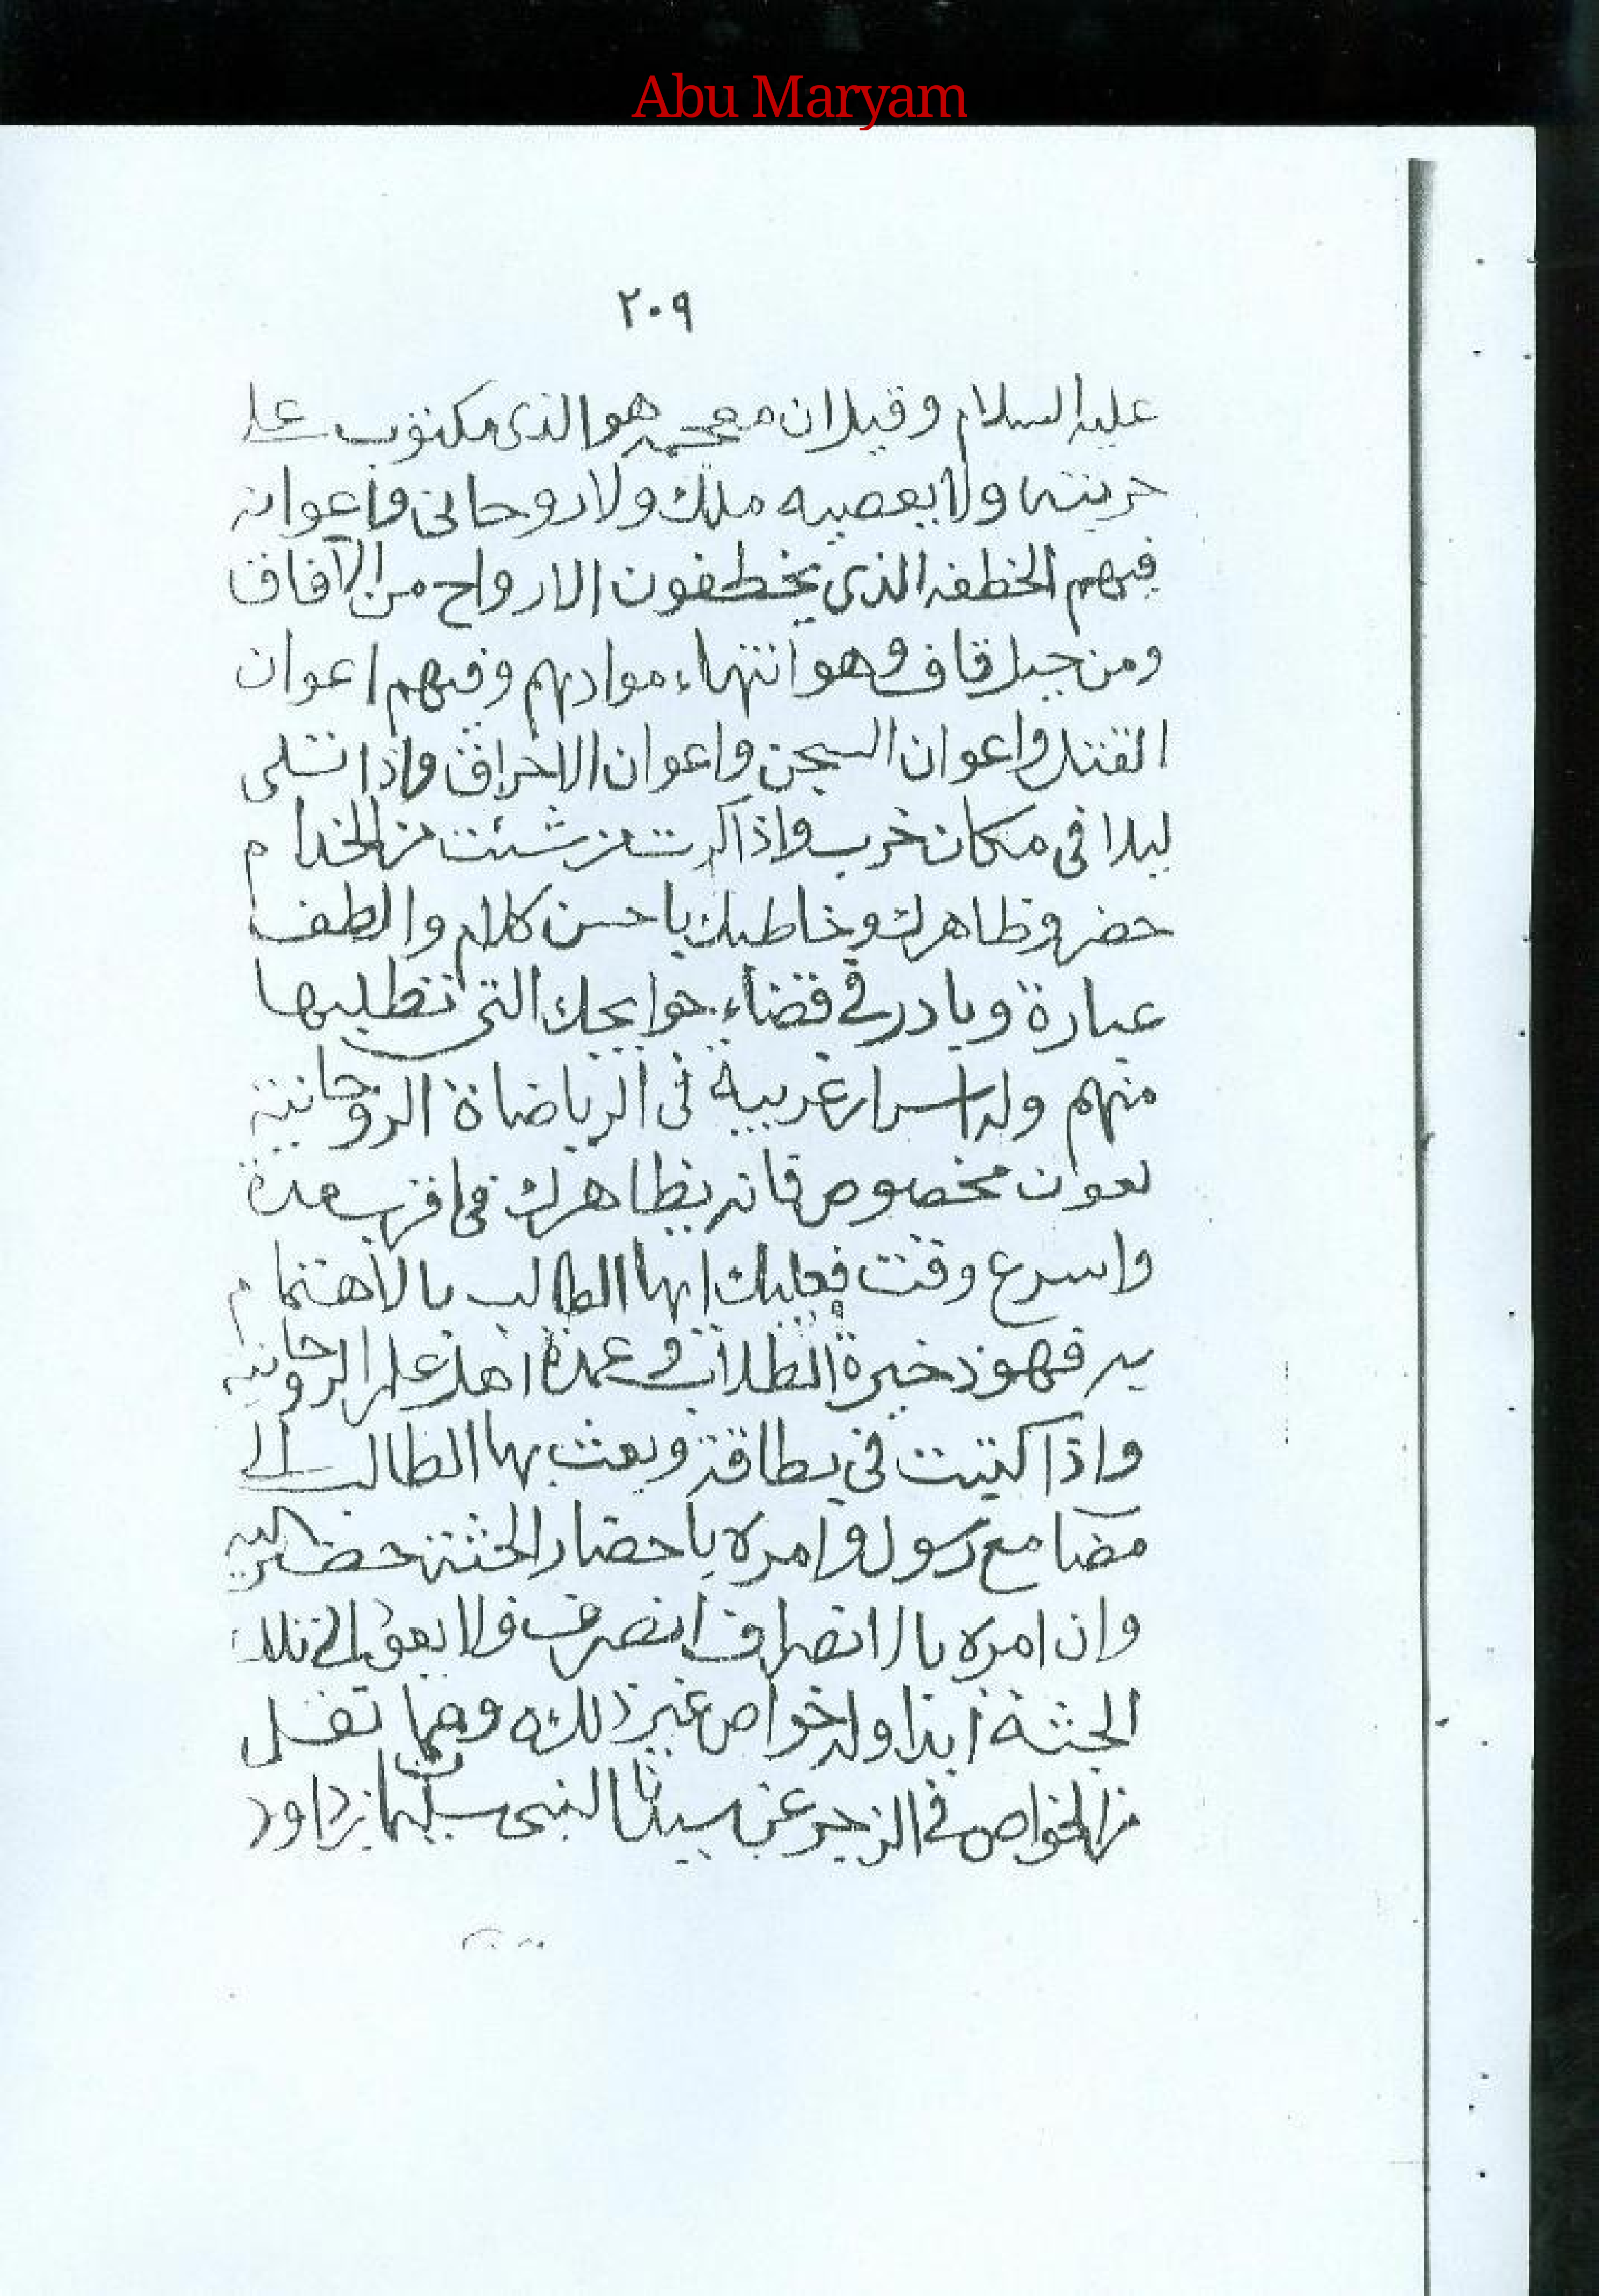 Abu Maryam
٢٠٩
عليه السلام وقيل ان هو الذى مكتوب على
حربته ولا يعصيه ملك ولا روحانى واعوانه
فيهم الخطفه الذى يخطفون الارواح من الآفاق
ومن جبل قاف وهو انتهاء موادهم وفيهم اعوان
القتل واعوان السجن واعوان الاحراق واذا تتلى
ليلا فى مكان خرب واذا من شئت من الخدام
حضر وظاهرك وخاطبك باحسن كلام والطف
عبارة وبادر في قضاء حوايجك التى تطلبها
منهم وله اسرار غريبة فى الرياضاة الروحانية
لعون مخصوص فانه يظاهرك فى اقرب مدة
واسرع وقت فعليك ايها الطالب بالاهتمام
به فهو ذخيرة الطلاب وعمدة اهل علم الروحانيه
واذا كتبت فى بطاقة وبعث بها الطالب الى
مع رسول وامره باحضار الجثة حضر اليه
وان امره بالانصراف انصرف ولا يعود الى تلك
الجثة ابدا وله خواص غير ذلك ومما نقل
من الخواص فى الزجر عن سيدنا النبى سليمان بن داود